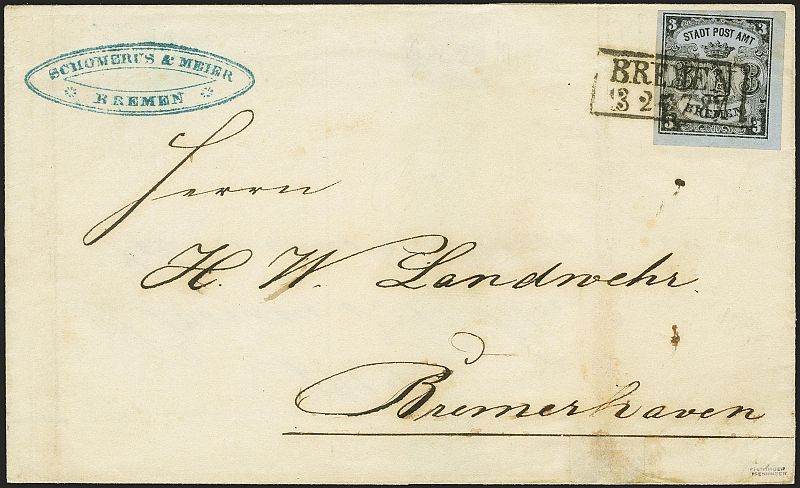 SCHOMERUS & MEIER
BREMEN
3 3
STADT POST AMT
BREMEN
BREMEN
3 3
Herrn
H. W. Landwehr
Bremerhaven